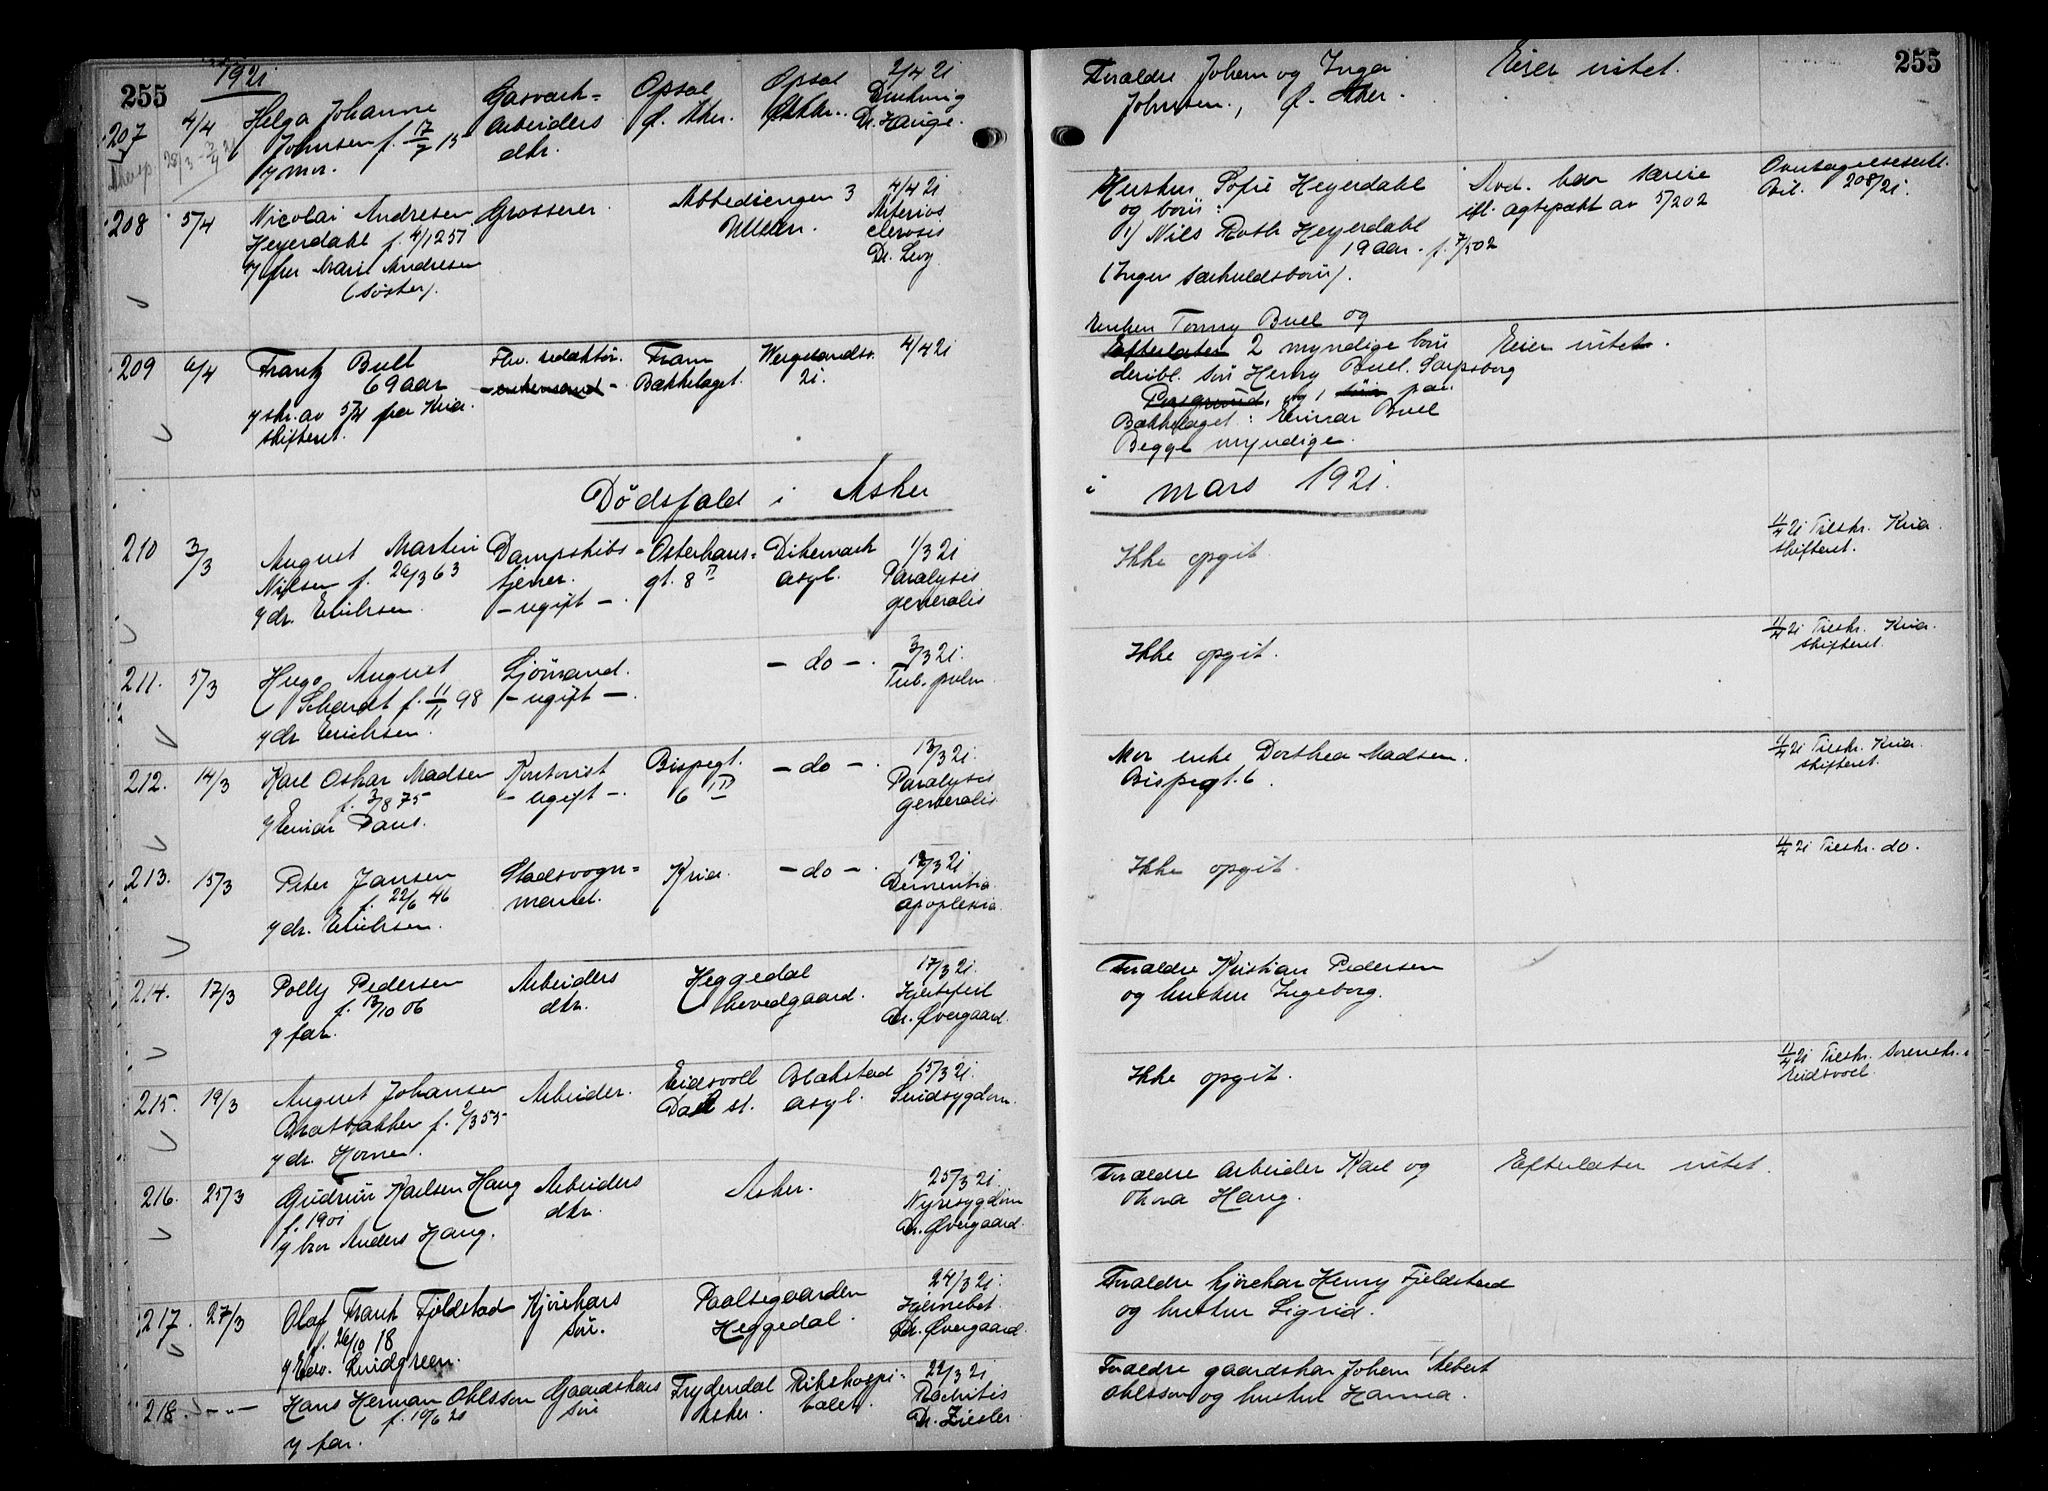 255
1921
207 4/4 Helga Johanne
Johnsen f. 17/7 15
/ mor.
Gasverk-
arbeiders
dtr.
Opsal
Ø. Aker.
Opsal
Ø. Aker.
2/4 21
Dr. Hauge.
208 5/4 Nicolai Andresen
Heyerdahl f. 4/12 57
/ fru Marie Andresen
(søster).
Grosserer.
Abbediengen 3
Ullern.
4/4 21
Arterios
clerosis
Dr. Levy
209 6/4 Frantz Bull
69 aar
/ skr. av 5/4 fra Kria.
skifteret.
Fhv. redaktør.
- enkemand -
Fram
Bækkelaget.
Wergelandsv.
21.
4/4 21
Dødsfald i Asker
210 3/3 August Martin
Nilsen f. 26/3 63
/ dr. Erichsen.
Dampskibs-
fører.
- ugift -.
Osterhaus-
gt. 8 II
Dikemark
asyl.
1/3 21
Paralysis
generalis
211. 5/3 Hugo August
Schandt f. 11/11 98
/ dr. Erichsen.
Sjømand.
- ugift -.
- do -.
3/3 21.
Tub. pulm.
212. 14/3 Karl Oskar Madsen
f. 3/8 75
/ Einar Paus.
Kontorist
- ugift -.
Bispegt.
6 III
- do -.
13/3 21.
Paralysis
generalis
213. 15/3 Peter Jansen
f. 22/6 46
/ dr. Erichsen.
Stadsvogn-
mand.
Kria.
- do -.
12/3 21
Dementia
apoplexia.
214. 17/3 Polly Pedersen
f. 13/10 06
/ far.
Arbeiders
dtr.
Heggedal
hovedgaard.
17/3 21.
Hjertefeil
Dr. Øvergaard.
215. 19/3 August Johansen
Bratbakken f. 2/3 55
/ dr. Horne.
Arbeider.
Eidsvoll
Dal st.
Blakstad
asyl.
15/3 21.
Sindsygdom.
216. 25/3 Gudrun Karlsen Haug
f. 1901
/ bror Anders Haug.
Arbeiders
dtr.
Asker.
25/3 21.
Nyresygdom
Dr. Øvergaard.
217. 27/3 Olaf Frank Fjeldstad
f. 26/10 18
/ Edv. Lindgreen.
Kjørekars
søn.
Paalsegaarden
Heggedal.
24/3 21.
Hjernebet.
Dr. Øvergaard.
218. - " - Hans Herman Ohlsson
f. 10/6 20
/ far.
Gaardskars
søn
Frydendal
Asker.
Rikshospi-
talet.
22/3 21
Rachitis
Dr. Ziesler.
255
Forældre Johan og Inga
Johnsen., Ø. Aker.
Eier intet.
Hustru Sofie Heyerdahl
og barn:
1) Nils Roth Heyerdahl
19 aar. f. 7/5 02
(Ingen særkuldsbarn).
Avd. har særeie
ifl. agtepakt av 5/2 02
Overtagelseserkl.
Bil. 208/21.
Enken Tonny Bull og
Efterlater 2 myndige barn
deribl. søn Henry Bull. Sarpsborg
Porsgrund, og 1 søn paa
Bækkelaget: Einar Bull
Begge myndige.
Eier intet.
i mars 1921.
Ikke opgit.
11/4 21 Tilskr. Kria.
skifteret.
Ikke opgit.
11/4 21 Tilskr. Kria.
skifteret.
Mor enke Dorthea Madsen.
Bispegt. 6.
11/4 21 Tilskr. Kria.
skifteret.
Ikke opgit.
11/4 21 Tilskr. do.
Forældre Kristian Pedersen
og hustru Ingeborg.
Ikke opgit.
11/4 21 Tilskr. sorenskr. i
Eidsvoll.
Forældre arbeider Karl og
Thora Haug.
Efterlater intet.
Forældre kjørekar Henry Fjeldstad
og hustru Sigrid.
Forældre gaardskar Johan Albert
Ohlsson og hustru Hanna.